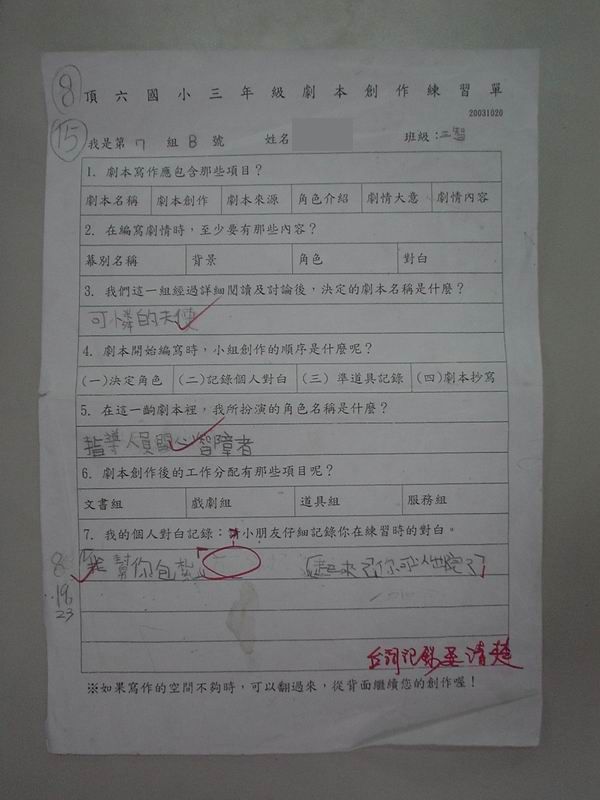 8
頂六國小三年級劇本創作練習單
20031020
15
我是第 7 組 B 號 姓名 班級:三智
1. 劇本寫作應包含那些項目?
劇本名稱 劇本創作 劇本來源 角色介紹 劇情大意 劇情內容
2. 在編寫劇情時,至少要有那些內容?
幕別名稱 背景 角色 對白
3. 我們這一組經過詳細閱讀及討論後,決定的劇本名稱是什麼?
可憐的天使
4. 劇本開始編寫時,小組創作的順序是什麼呢?
(一)決定角色 (二)記錄個人對白 (三) 準道具記錄 (四)劇本抄寫
5. 在這一齣劇本裡,我所扮演的角色名稱是什麼?
指導人員關心智障者
6. 劇本創作後的工作分配有那些項目呢?
文書組 戲劇組 道具組 服務組
7. 我的個人對白記錄:請小朋友仔細記錄你在練習時的對白。
8 我幫你包紮 起來了你可以
19
23
台詞記錄要清楚
※如果寫作的空間不夠時,可以翻過來,從背面繼續您的創作喔!